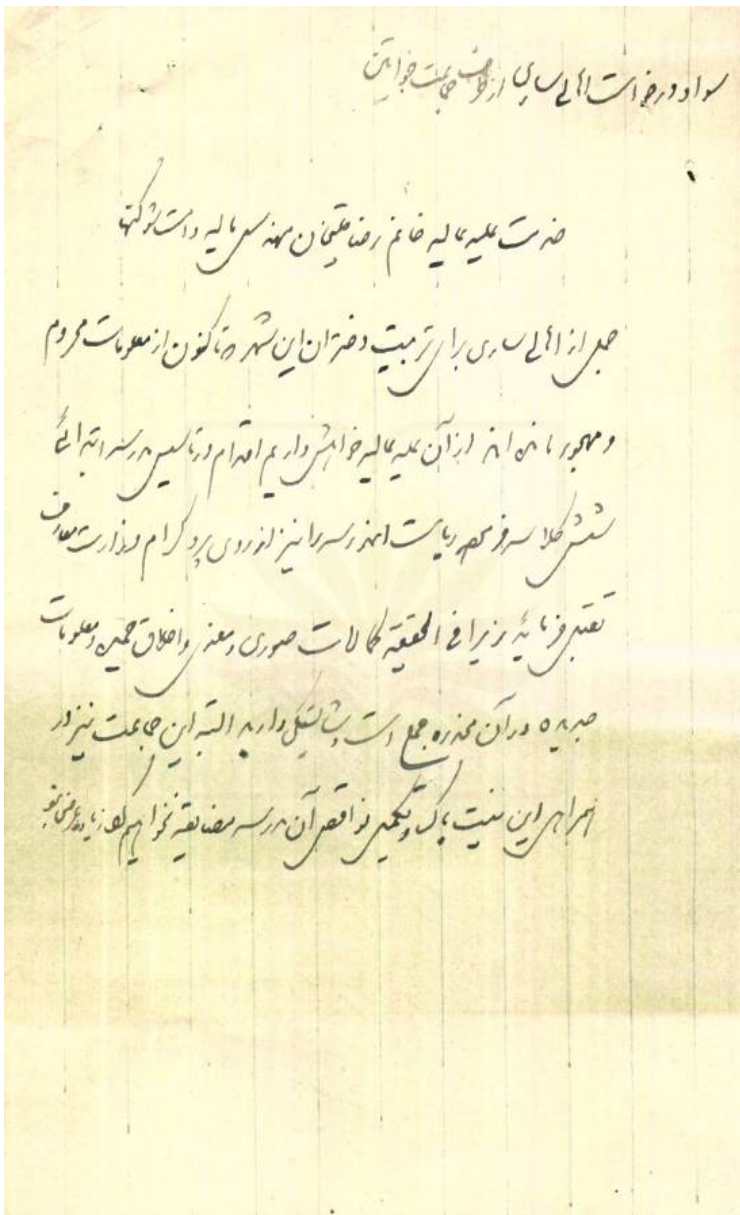 سواد درخواست اهالی ساری از طرف جماعت خواتین
خدمت علیه عالیه خانم رضا قلیخان مهندس مالیه دامت شوکتها
جمعی از اهالی ساری برای تربیت دختران این شهر که تاکنون از معلومات محروم
و مهجور مانده اند از آن علیه عالیه خواهش داریم اقدام در تاسیس مدرسه ابتدائی
شش کلاسه فرموده ریاست آنمدرسه را نیز از روی پروگرام وزارت معارف
تقبل فرمائید زیرا فی الحقیقه کمالات صوری و معنوی و اخلاق حمیده و معلومات
جدیده در آن مخدره جمع است و شایستگی دارید البته این جماعت نیز در
همراهی این نیت پاک و تکمیل نواقص آن مدرسه مضایقه نخواهیم کرد زیاده عرضی نبود